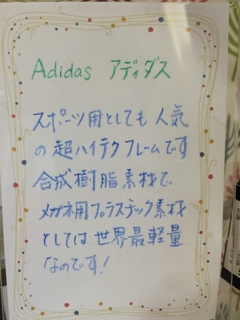 Adidas アディダス
スポーツ用としても人気
の超ハイテクフレームです
合成樹脂素材で、
メガネ用プラスチック素材
としては世界最軽量
なのです!